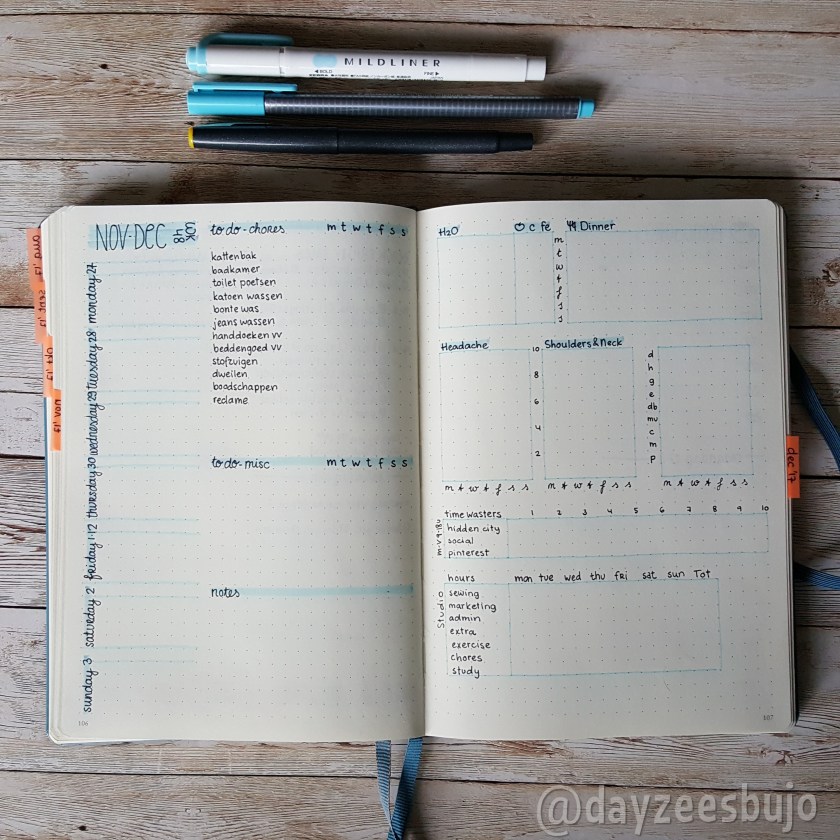 MILDLINER
BOLD
FINE
NOV-DEC WK 48
monday 27
tuesday 28
wednesday 29
thursday 30
friday 1·12
saturday 2
sunday 3
106
to do - chores m t w t f s s
kattenbak
badkamer
toilet poetsen
katoen wassen
bonte was
jeans wassen
handdoeken vv
beddengoed vv
stofzuigen
dweilen
boodschappen
reclame
to do - misc m t w t f s s
notes
H2O
C Fe
Dinner
m
t
w
t
f
s
s
Headache
10
8
6
4
2
m t w t f s s
Shoulders & Neck
m t w t f s s
d
h
g
e
db
mu
c
m
p
m t w t f s s
time wasters 1 2 3 4 5 6 7 8 9 10
hidden city
social
pinterest
hours mon tue wed thu fri sat sun Tot
Studio
sewing
marketing
admin
extra
exercise
chores
study
107
dec '17
@dayzeesbujo